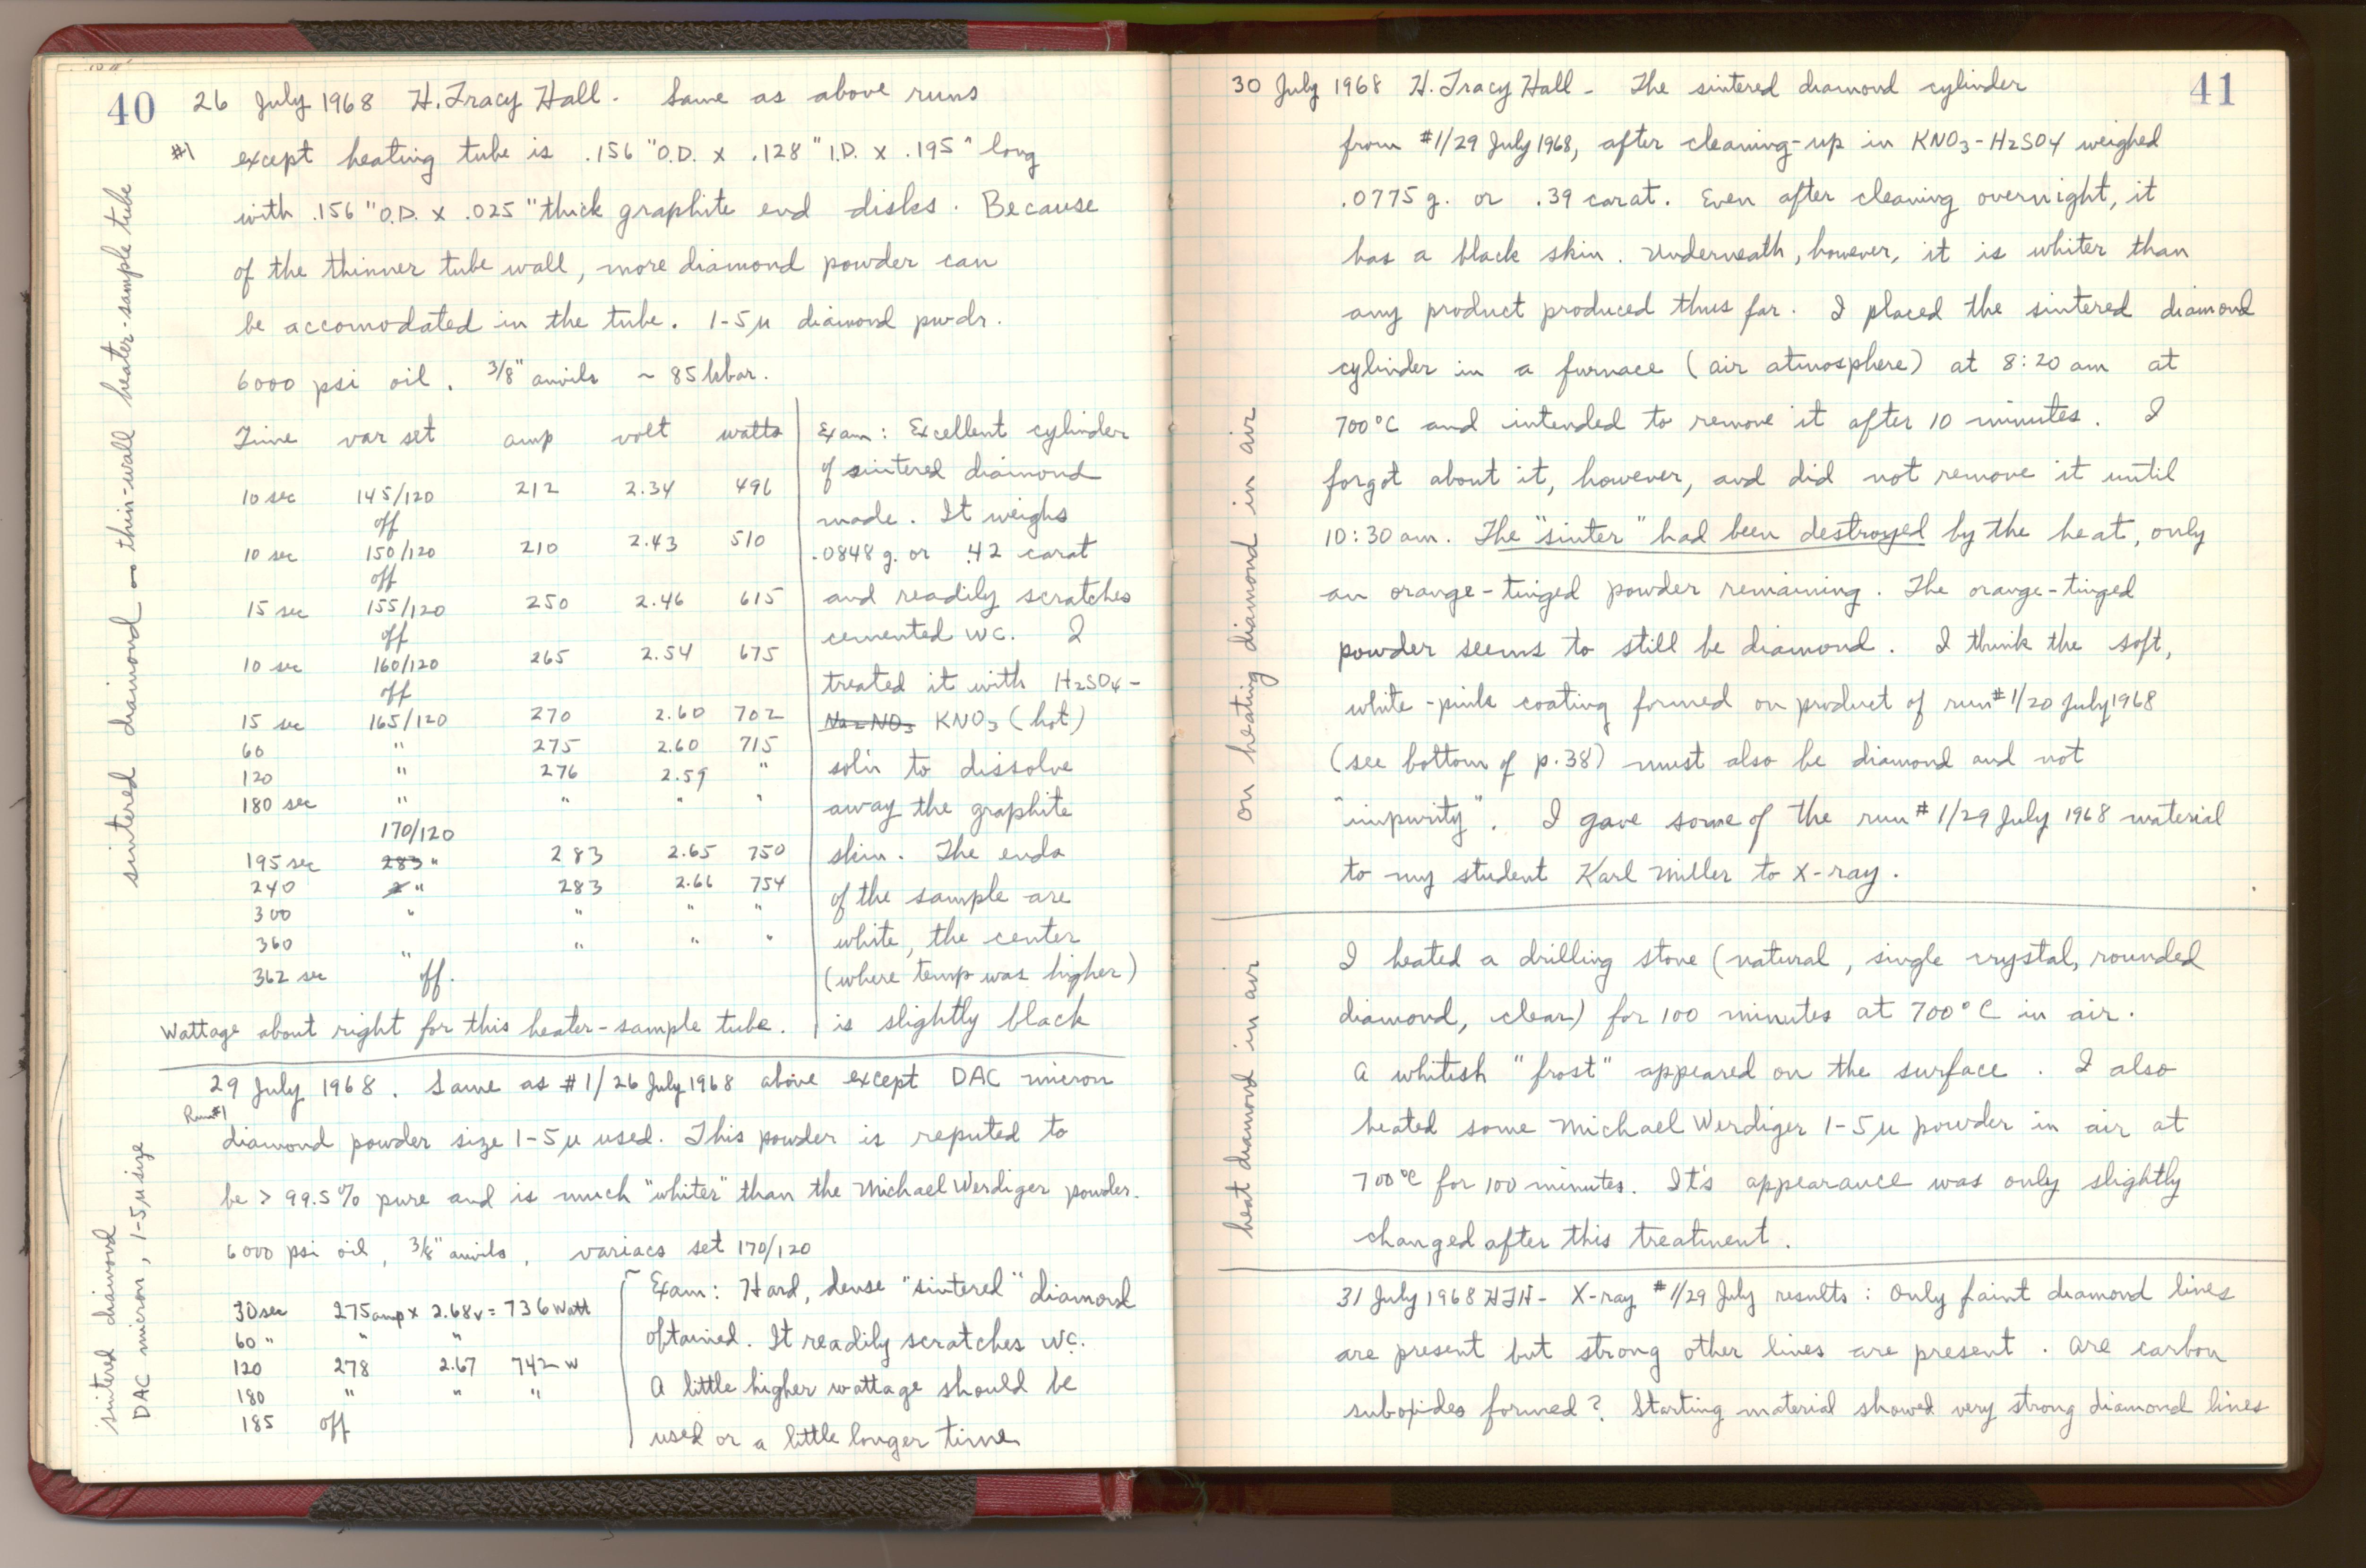 40
26 July 1968 H. Tracy Hall - Same as above runs
#1 except heating tube is .156" O.D. x .128" I.D. x .195" long
with .156" O.D. x .025" thick graphite end disks. Because
of the thinner tube wall, more diamond powder can
be accomodated in the tube. 1-5 µ diamond pwdr.
6000 psi oil. 3/8" anvils ~ 85 kbar.
Time var set amp volt watts
10 sec 145/120 212 2.34 496
off
10 sec 150/120 210 2.43 510
off
15 sec 155/120 250 2.46 615
off
10 sec 160/120 265 2.54 675
off
15 sec 165/120 270 2.60 702
60 " 275 2.60 715
120 " 276 2.59 "
180 sec " " " "
170/120
195 sec 283 " 283 2.65 750
240 2 " 283 2.66 754
300 " " " "
360 " " " "
362 sec " off.
Wattage about right for this heater-sample tube.
Exam: Excellent cylinder
of sintered diamond
made. It weighs
.0848 g. or .42 carat
and readily scratches
cemented WC. I
treated it with H2SO4-
Na2NO3 KNO3 (hot)
sol'n to dissolve
away the graphite
skin. The ends
of the sample are
white, the center
(where temp was higher)
is slightly black
sintered diamond - thin-wall heater-sample tube
29 July 1968. Same as #1/26 July 1968 above except DAC micron
Run #1
diamond powder size 1-5 µ used. This powder is reputed to
be > 99.5% pure and is much "whiter" than the Michael Werdiger powder.
6000 psi oil, 3/8" anvils, variacs set 170/120
30 sec 275 amp x 2.68v = 736 Watt
60 " " "
120 278 2.67 742 w
180 " " "
185 off
Exam: Hard, dense "sintered" diamond
obtained. It readily scratches WC.
A little higher wattage should be
used or a little longer time
sintered diamond
DAC micron, 1-5 µ size
41
30 July 1968 H. Tracy Hall - The sintered diamond cylinder
from #1/29 July 1968, after cleaning-up in KNO3-H2SO4 weighed
.0775 g. or .39 carat. Even after cleaning overnight, it
has a black skin. Underneath, however, it is whiter than
any product produced thus far. I placed the sintered diamond
cylinder in a furnace (air atmosphere) at 8:20 am at
700°C and intended to remove it after 10 minutes. I
forgot about it, however, and did not remove it until
10:30 am. The "sinter" had been destroyed by the heat, only
an orange-tinged powder remaining. The orange-tinged
powder seems to still be diamond. I think the soft,
white-pink coating formed on product of run #1/20 July 1968
(see bottom of p.38) must also be diamond and not
"impurity". I gave some of the run #1/29 July 1968 material
to my student Karl Miller to X-ray.
on heating diamond in air
I heated a drilling stone (natural, single crystal, rounded
diamond, clear) for 100 minutes at 700°C in air.
A whitish "frost" appeared on the surface. I also
heated some Michael Werdiger 1-5 µ powder in air at
700°C for 100 minutes. It's appearance was only slightly
changed after this treatment.
heat diamond in air
31 July 1968 HTH - X-ray #1/29 July results: Only faint diamond lines
are present but strong other lines are present. Are carbon
suboxides formed? Starting material showed very strong diamond lines